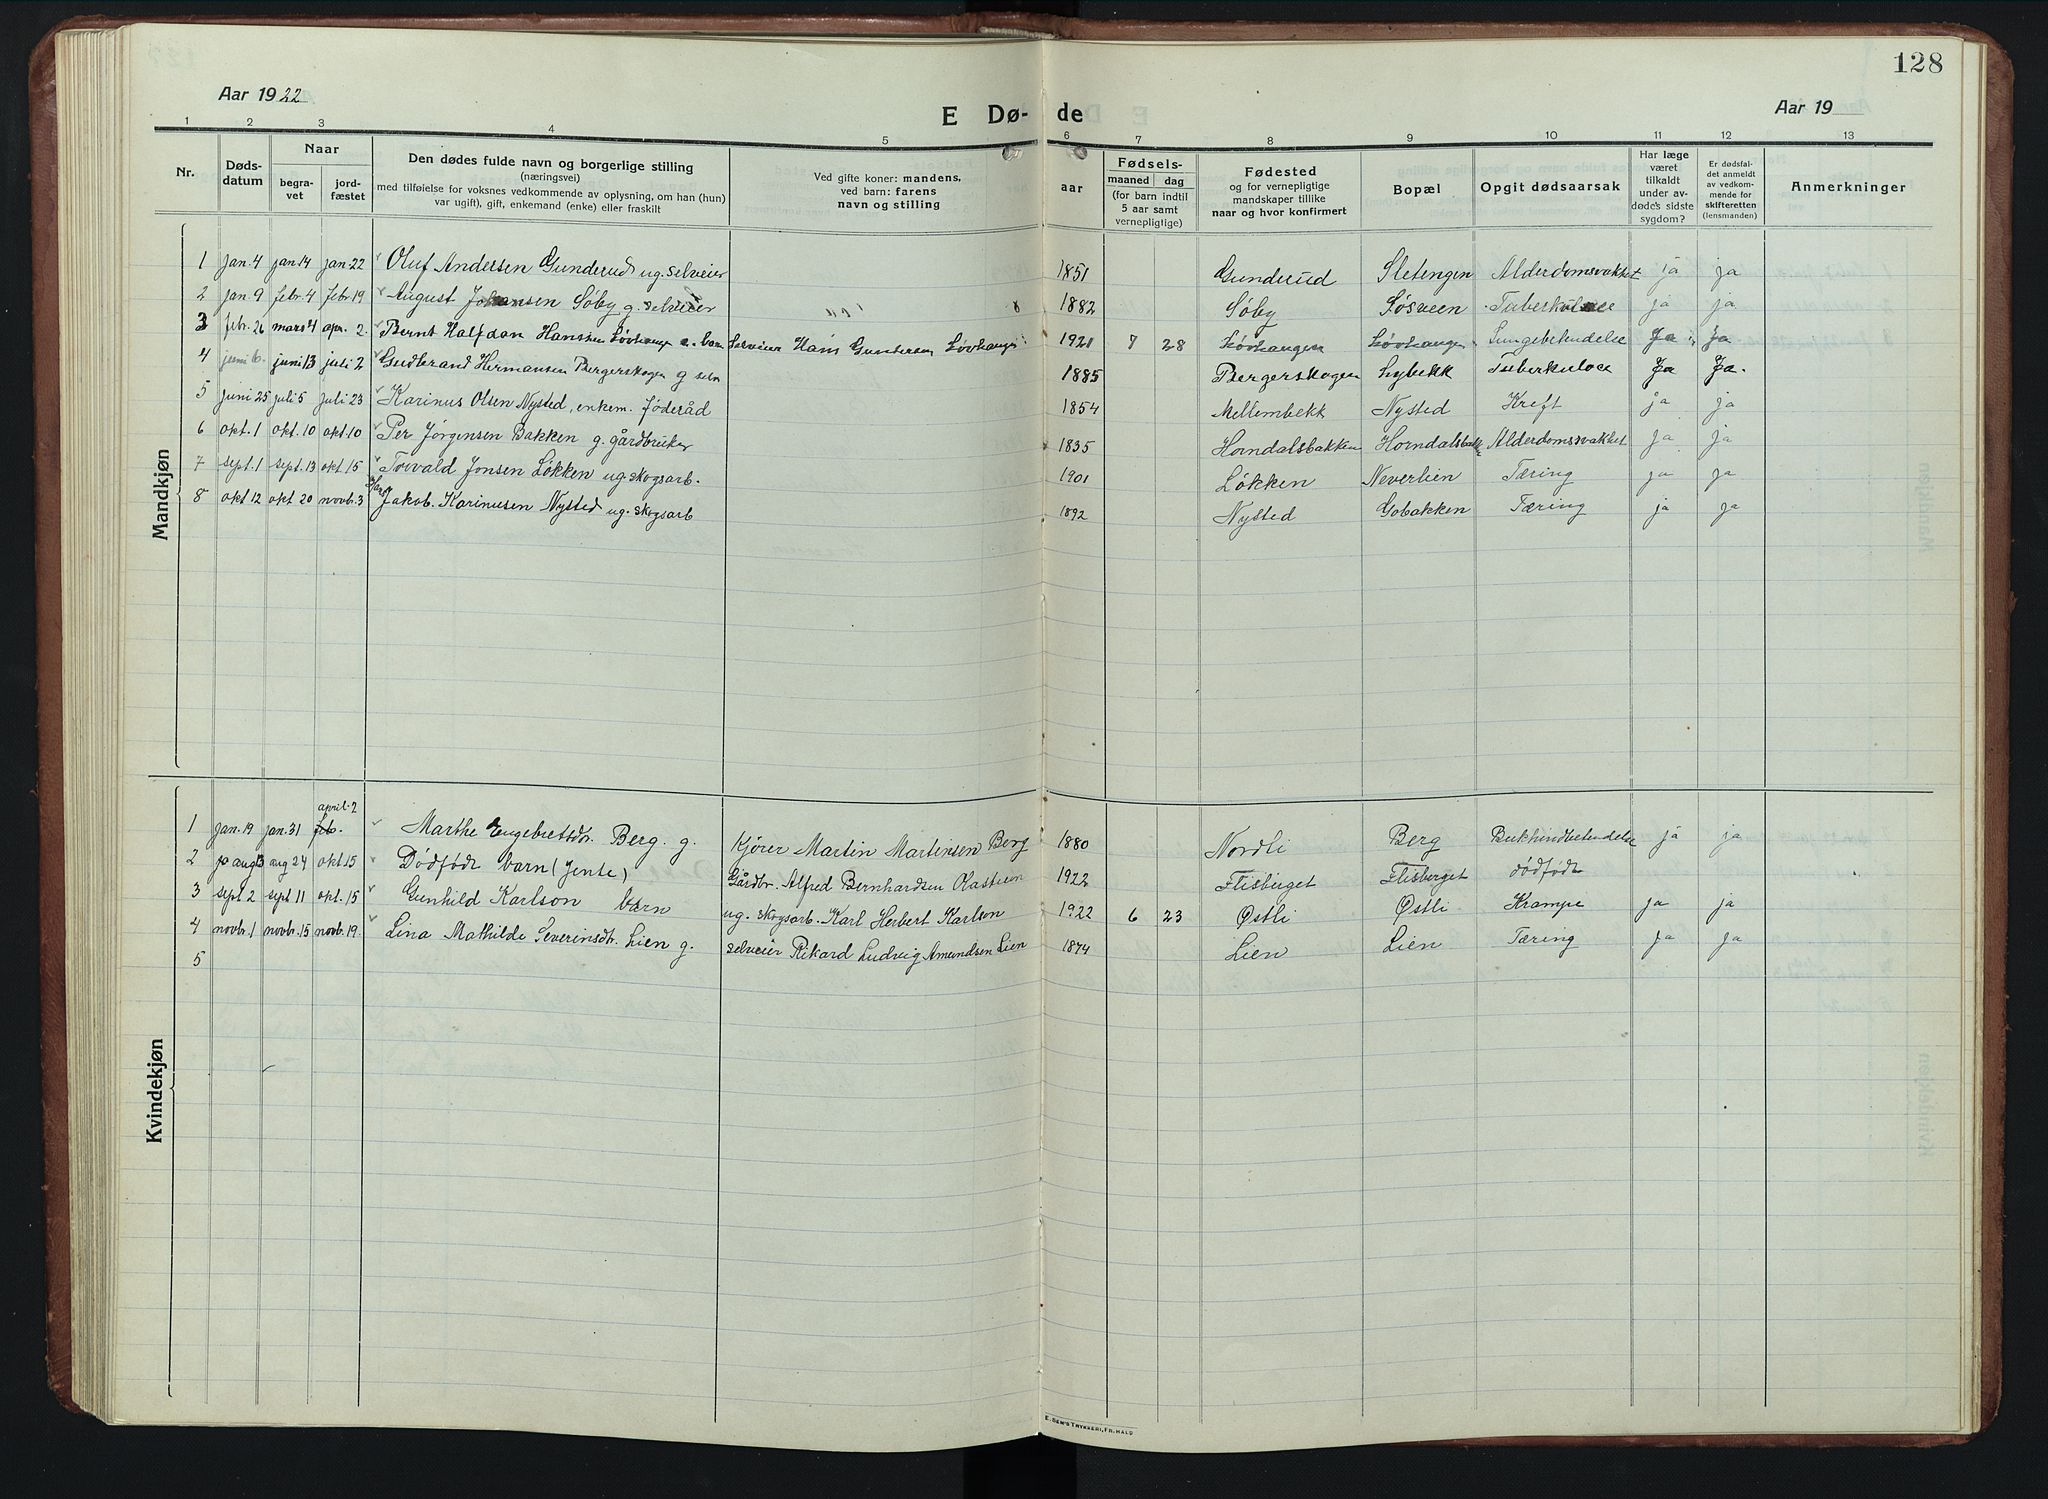 128
Aar 1922
E Dø- de
Aar 19
1 2 3 4 5 6 7 8 9 10 11 12 13
Nr.
Døds-
datum
Naar
begra-
vet
jord-
fæstet
Den dødes fulde navn og borgerlige stilling
(næringsvei)
med tilføielse for voksnes vedkommende av oplysning, om han (hun)
var ugift), gift, enkemand (enke) eller fraskilt
Ved gifte koner: mandens,
ved barn: farens
navn og stilling
aar
Fødsels-
maaned dag
(for barn indtil
5 aar samt
vernepligtige)
Fødested
og for vernepligtige
mandskaper tillike
naar og hvor konfirmert
Bopæl
Opgit dødsaarsak
Har læge
været
tilkaldt
under av-
døde's sidste
sygdom?
Er dødsfal-
det anmeldt
av vedkom-
mende for
skifteretten
(lensmanden)
Anmerkninger
Mandkjøn
1 jan. 4 jan. 14 jan. 22 Oluf Andersen Gunderud ug. selveier 1851 Gunderud Sletengen Alderdomsvakhet ja ja
2 jan. 9 febr. 4 febr. 19 August Johansen Søby g. selveier 1882 Søby Søsveen Tuberkulose ja ja
3 febr. 26 mars 4 apr. 2 Bernt Halfdan Hansen Løvhaugen barn Selveier Hans Gundersen Løvhaugen 1921 7 28 Løvhaugen Løvhaugen Lungebetendelse Ja Ja
4 juni 6. juni 13 juli 2 Gudbrand Hermansen Bergerskogen g selv 1885 Bergerskogen Lybekk Tuberkulose Ja Ja.
5 juni 25 juli 5 juli 23 Karinus Olsen Nysted, enkem. føderåd 1854 Mellembekk Nysted Kreft ja ja
6 okt. 1 okt. 10 okt. 10 Per Jørgensen Bakken g. gårdbruker 1835 Horndalsbakken Horndalsbakk Alderdomssvakhet ja ja
7 sept. 1 sept. 13 okt. 15 Torvald Jonsen Løkken ug. skogsarb. 1901 Løkken Neverlien Tæring ja ja
8 okt 12 okt 20 novb. 3 Hans Jakob Karinusen Nysted ug. skogsarb 1892 Nysted Gobakken Tæring ja ja
Kvindekjøn
april 2
1 jan. 19 jan. 31 feb. Marthe Engebretsdr. Berg g. Kjører Martin Martinsen Berg 1880 Nordli Berg Bukhindbetendelse ja ja
2 aug 13 aug 24 okt 15 Dødfødt barn (Jente) Gårdbr. Alfred Bernhardsen Olasveen 1922 Flisberget Flisberget dødfødt
3 sept 2 sept 11 okt. 15 Gunhild Karlson barn ug. skogsarb. Karl Herbert Karlson 1922 6 23 Østli Østli Krampe ja ja
4 novb. 1 novb. 15 novb. 19 Lina Mathilde Severinsdtr. Lien g. selveier Rikard Ludvig Amundsen Lien 1874 Lien Lien Tæring ja ja
5
E. SEM'S TRYKKERI, FR.HALD